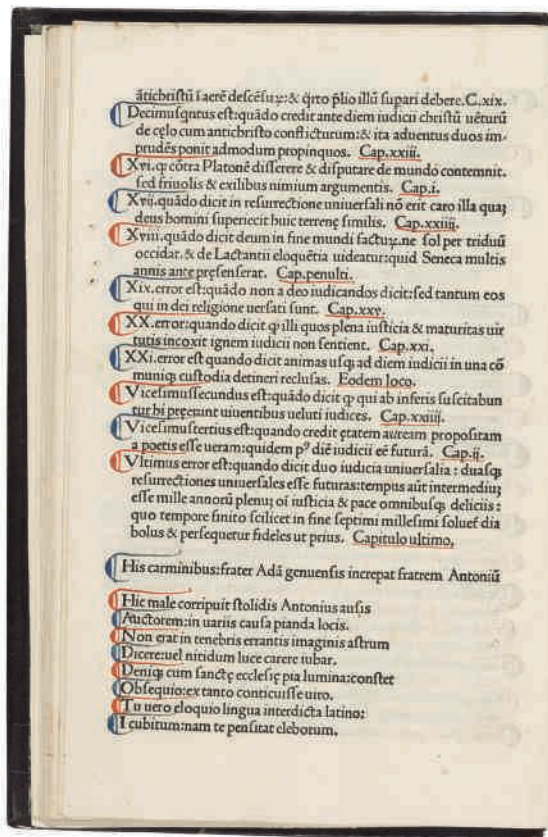 āticbristū ī aerē descēsuꝝ:& q̄rto p̄lio illū supari debere.C.xix.
Decimusq̄ntus est:quādo credit ante diem iudicii christū uēturū
de cęlo cum antichristo conflicturum:& ita aduentus duos im-
prudēs ponit admodum propinquos. Cap.xxiii.
Xvi.qꝫ cōtra Platonē disserere & disputare de mundo contemnit.
sed friuolis & exilibus nimium argumentis. Cap.i.
Xvii.quādo dicit in resurrectione uniuersali nō erit caro illa quaꝫ
deus homini superiecit huic terrenę similis. Cap.xxiiii.
Xviii.quādo dicit deum in fine mundi factuꝝ.ne sol per triduū
occidat.& de Lactantii eloquētia uideatur:quid Seneca multis
annis ante pręsenserat. Cap.penulti.
Xix.error est:quādo non a deo iudicandos dicit:sed tantum eos
qui in dei religione uersati sunt. Cap.xxv.
XX.error:quando dicit ꝙ illi quos plena iusticia & maturitas uir
tutis incoxit ignem iudicii non sentient. Cap.xxi.
XXi.error est quando dicit animas usqꝫ ad diem iudicii in una cō
muniqꝫ custodia detineri reclusas. Eodem loco.
Vicesimussecundus est:quādo dicit ꝙ qui ab inferis suscitabun
tur hi pręerunt uiuentibus ueluti iudices. Cap.xxiiii.
Vicesimustertius est:quando credit ętatem auream propositam
a poetis esse ueram:quidem pꝰ diē iudicii eē futurā. Cap.ii.
Vltimus error est:quando dicit duo iudicia uniuersalia : duasqꝫ
resurrectiones uniuersales esse futuras:tempus aūt intermediuꝫ
esse mille annorū plenuꝫ oī iusticia & pace omnibusqꝫ deliciis :
quo tempore finito scilicet in fine septimi millesimi soluef dia
bolus & persequetur fideles ut prius. Capitulo ultimo,
His carminibus:frater Adā genuensis increpat fratrem Antoniū
Hic male corripuit stolidis Antonius ausis
Auctorem:in uariis causa pianda locis.
Non erat in tenebris errantis imaginis astrum
Dicere:uel nitidum luce carere iubar.
Deniqꝫ cum sanctę ecclesię pia lumina:constet
Obsequio:ex tanto conticuisse uiro.
Tu uero eloquio lingua interdicta latino:
I cubitum:nam te pensitat eleborum.